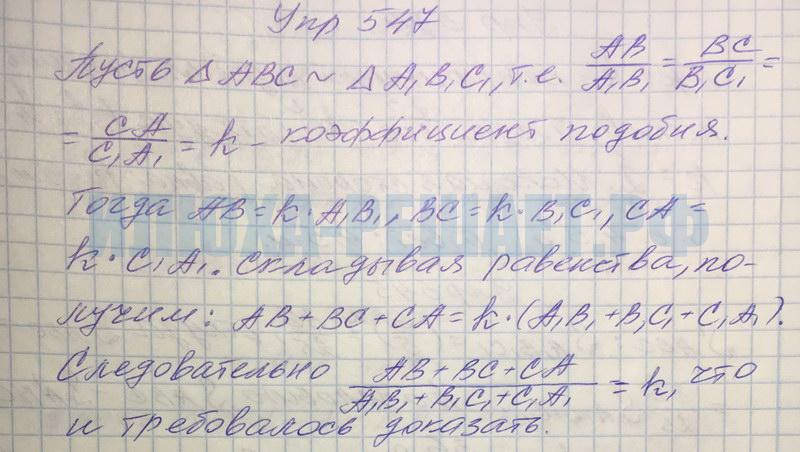 Упр 547
Пусть Δ ABC ~ Δ A₁B₁C₁, т.е. AB/A₁B₁ = BC/B₁C₁ =
= CA/C₁A₁ = k – коэффициент подобия.
Тогда AB = k · A₁B₁, BC = k · B₁C₁, CA =
k · C₁A₁. Складывая равенства, по-
лучим: AB + BC + CA = k · (A₁B₁ + B₁C₁ + C₁A₁).
Следовательно AB + BC + CA / A₁B₁ + B₁C₁ + C₁A₁ = k, что
и требовалось доказать.
ИЛЮХА-РЕШАЕТ.РФ